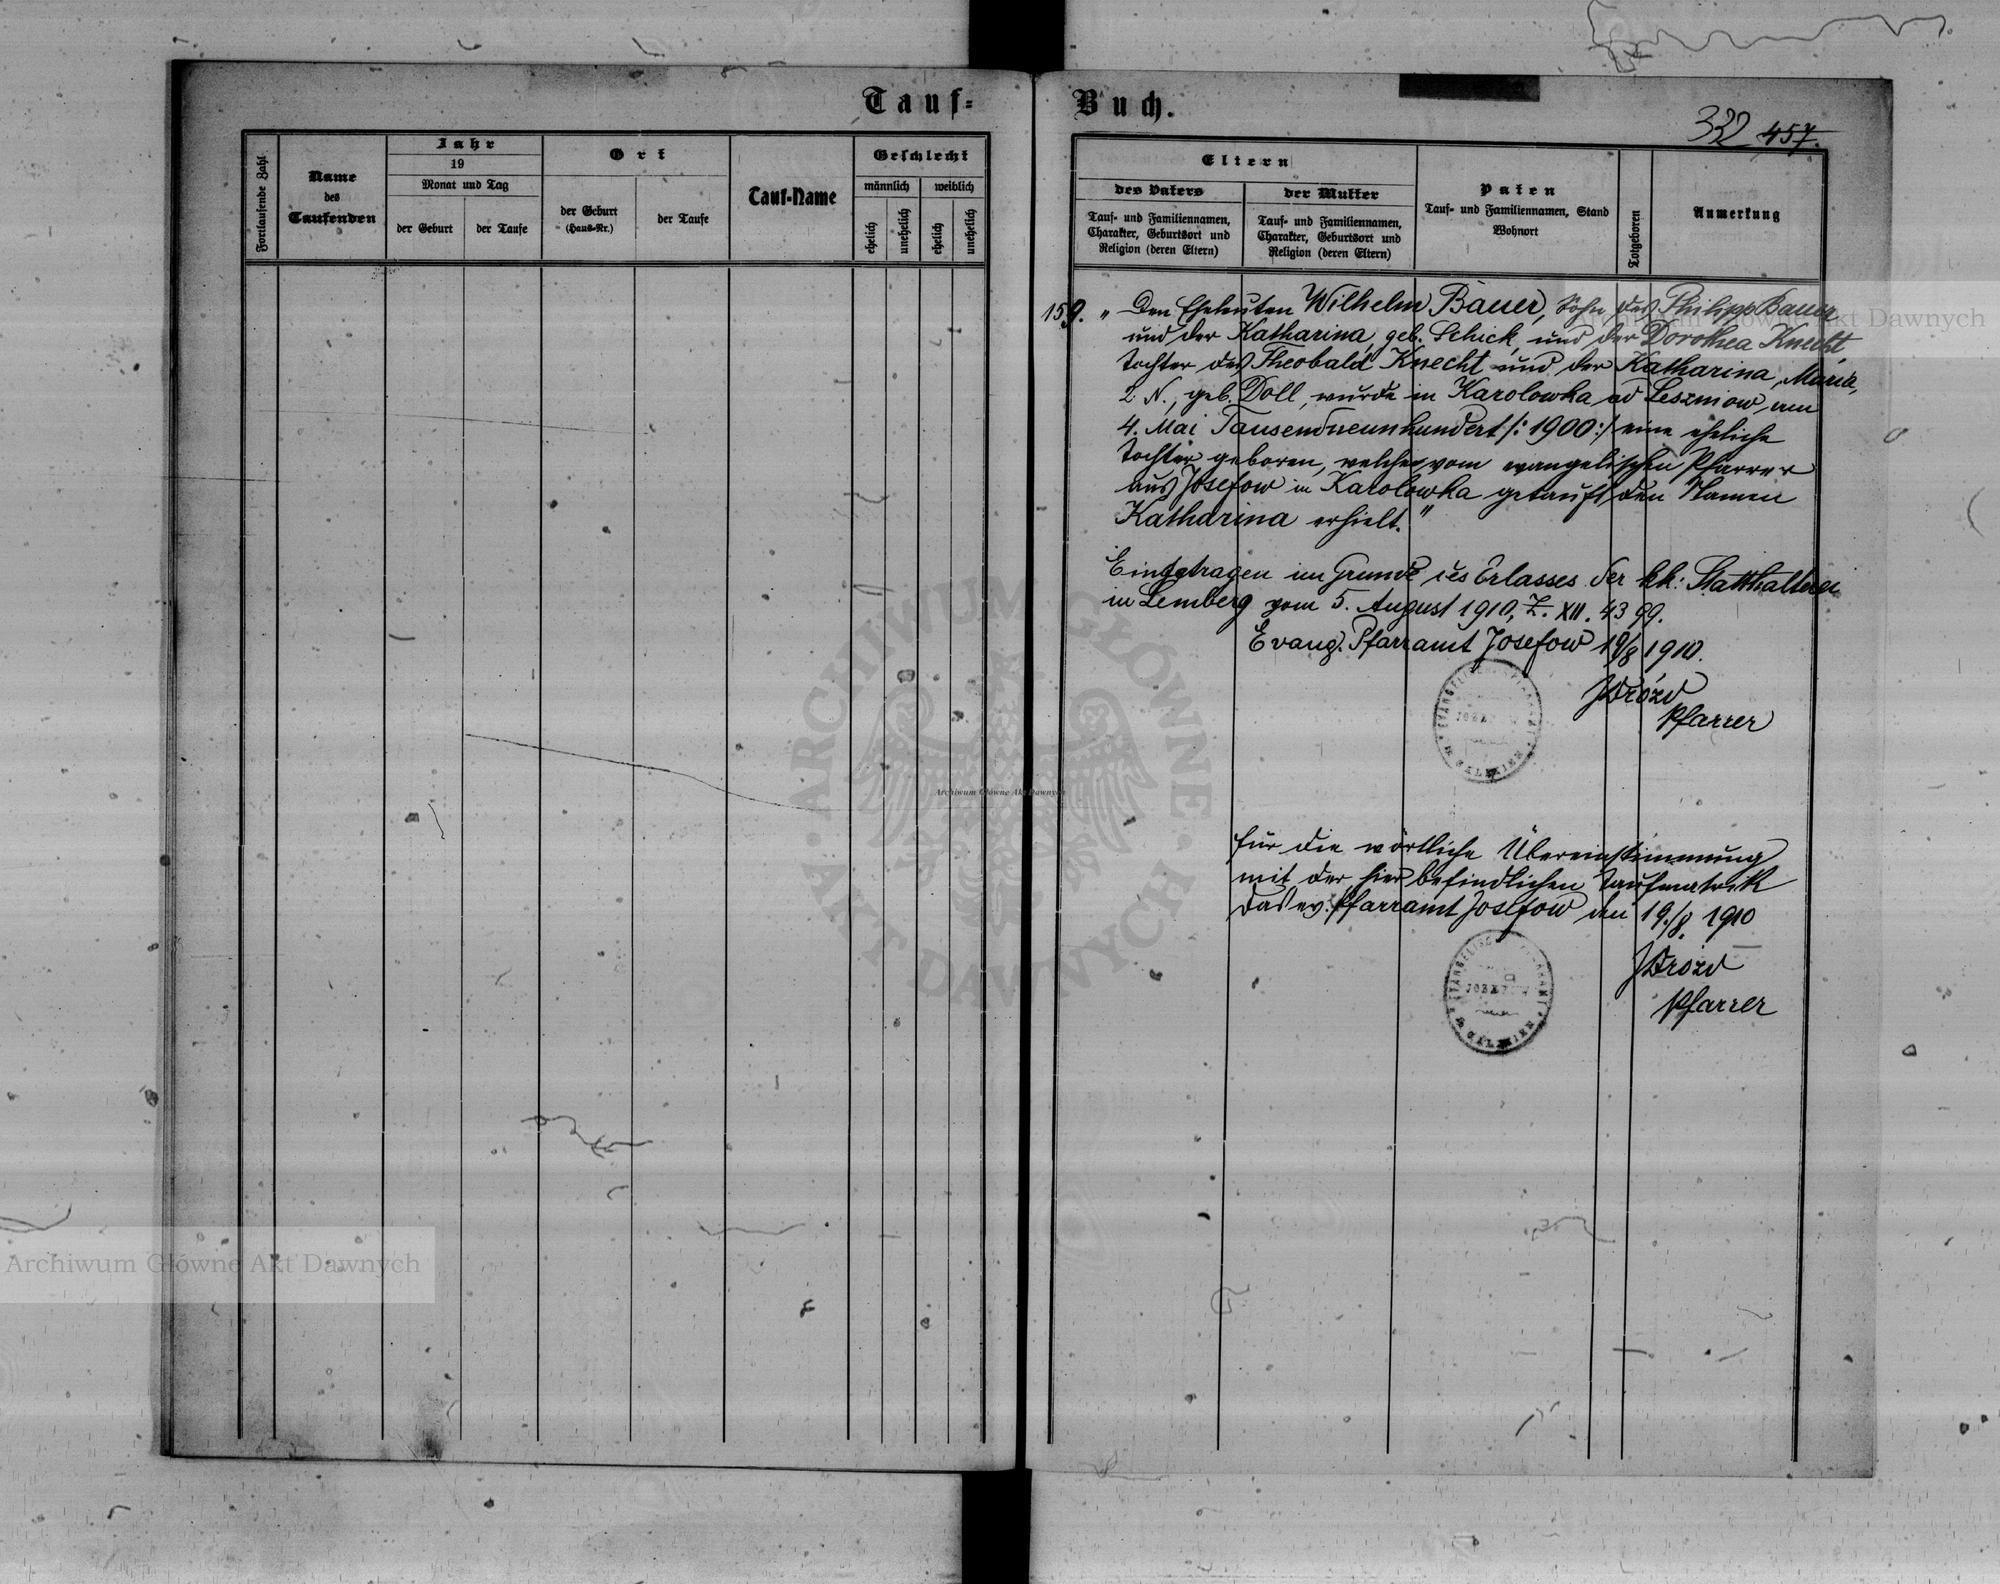 Tauf-
Buch.
332 457.
Fortlaufende Zahl
Name
des
Taufenden
Jahr
19
Monat und Tag
der Geburt
der Taufe
Ort
der Geburt
(Haus-Nr.)
der Taufe
Tauf-Name
Geschlecht
männlich
weiblich
ehelich
unehelich
ehelich
unehelich
Eltern
des Vaters
Tauf- und Familiennamen,
Charakter, Geburtsort und
Religion (deren Eltern)
der Mutter
Tauf- und Familiennamen,
Charakter, Geburtsort und
Religion (deren Eltern)
Paten
Tauf- und Familiennamen, Stand
Wohnort
Totgeboren
Anmerkung
159. „ Den Eheleuten Wilhelm Bauer, Sohn des Philipp Bauer
und der Katharina, geb. Schick, und der Dorothea Knecht,
Tochter des Theobald Knecht und der Katharina, Maria,
2 N., geb. Doll, wurde in Karolowka ad Leszniow, am
4. Mai Tausendneunhundert /: 1900 :/ eine eheliche
Tochter geboren, welche vom evangelischen Pfarrer
aus Josefow in Karolowka getauft den Namen
Katharina erhielt. "
Eingetragen im Grunde des Erlasses der kk: Statthalterei
in Lemberg vom 5. August 1910, Z. XII. 4399.
Evang. Pfarramt Josefow 19/8 1910.
JDrozd
Pfarrer
Für die wörtliche Übereinstimmung
mit der hier befindlichen Taufmatrik
Das ev. Pfarramt Josefow den 19./8. 1910
JDrozd
Pfarrer
ARCHIWUM GŁÓWNE AKT DAWNYCH
Archiwum Główne Akt Dawnych
Archiwum Główne Akt Dawnych
Archiwum Główne Akt Dawnych